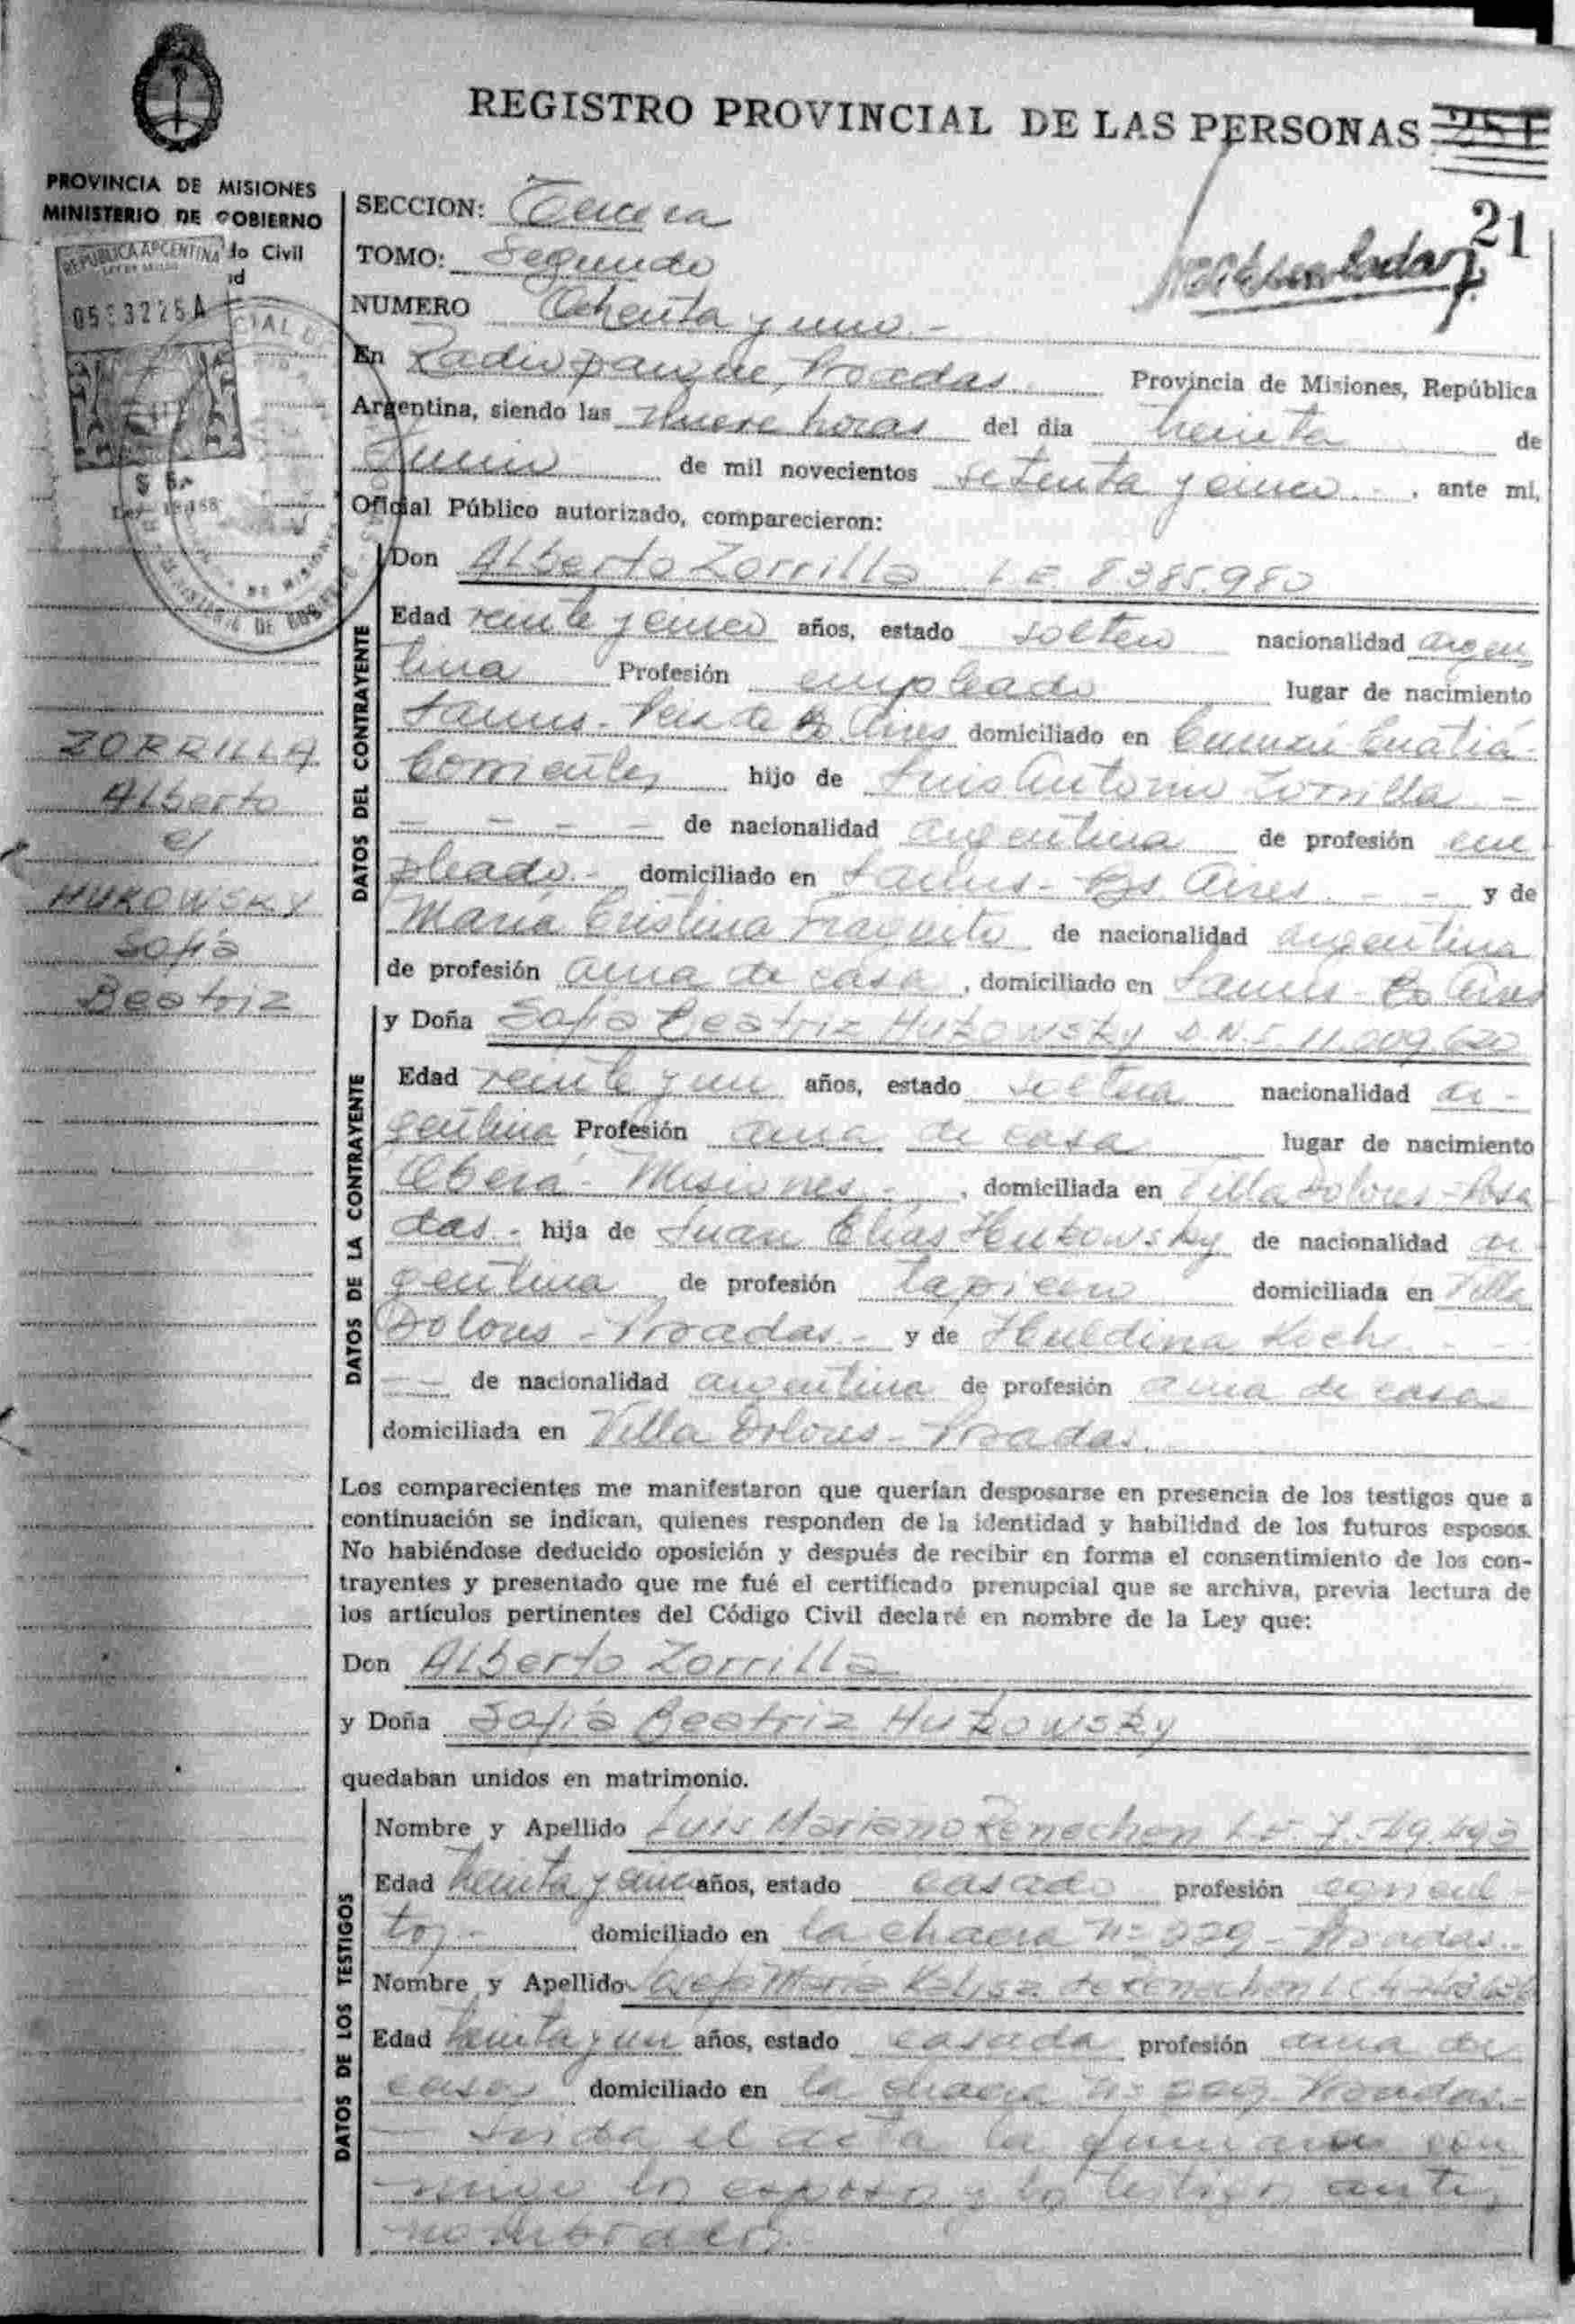 REGISTRO PROVINCIAL DE LAS PERSONAS
PROVINCIA DE MISIONES
MINISTERIO DE GOBIERNO
do Civil
REPUBLICA ARGENTINA
21
SECCION: Tercera
TOMO: Segundo
NUMERO Ochenta y uno.-
En Radio parque, Posadas Provincia de Misiones, República
Argentina, siendo las nueve horas del dia treinta de
Junio de mil novecientos setenta y cinco.-, ante mi,
Oficial Público autorizado, comparecieron:
DATOS DEL CONTRAYENTE
Don Alberto Zorrilla L E 8385.980
Edad veinte y cinco años, estado soltero nacionalidad argen
tina Profesión empleado lugar de nacimiento
Lanus - Pcia de Bs Aires domiciliado en Curuzú Cuatiá-
Corrientes hijo de Luis Antonio Zorrilla -
- - - - de nacionalidad argentina de profesión em
pleado.- domiciliado en Lanus - Bs. Aires. - - y de
María Cristina de nacionalidad argentina
de profesión ama de casa, domiciliado en Lanus - Bs Aires
DATOS DE LA CONTRAYENTE
y Doña Sofía Beatriz Hukowsky D.N.I 11.009.620
Edad veinte y un años, estado soltera nacionalidad ar-
gentina Profesión ama de casa lugar de nacimiento
Oberá - Misiones.-, domiciliada en Villa Dolores - Posa
das.- hija de Juan Elías Hukowsky de nacionalidad ar
gentina de profesión tapicero domiciliada en Villa
Dolores - Posadas.- y de Huldina Koch - -
- - de nacionalidad argentina de profesión ama de casa
domiciliada en Villa Dolores - Posadas.
ZORRILLA
Alberto
c/
HUKOWSKY
Sofía
Beatriz
Los comparecientes me manifestaron que querían desposarse en presencia de los testigos que a
continuación se indican, quienes responden de la identidad y habilidad de los futuros esposos.
No habiéndose deducido oposición y después de recibir en forma el consentimiento de los con-
trayentes y presentado que me fué el certificado prenupcial que se archiva, previa lectura de
los artículos pertinentes del Código Civil declaré en nombre de la Ley que:
Don Alberto Zorrilla
y Doña Sofía Beatriz Hukowsky
quedaban unidos en matrimonio.
DATOS DE LOS TESTIGOS
Nombre y Apellido Luis Mariano Renechon L.E.
Edad treinta y cinco años, estado casado profesión
domiciliado en la chacra Nº 229 - Posadas.-
Nombre y Apellido Josefa María de Renechon
Edad treinta y un años, estado casada profesión ama de
casa domiciliado en la chacra Nº 229 Posadas.-
- Leída el acta la firmaron con
migo los esposos y los testigos ante
nombrados.